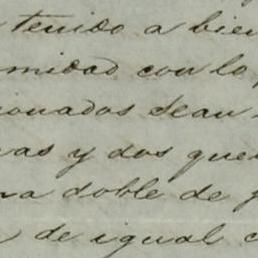 tenido a bien
midad con lo
ionados sean
as y dos que
na doble de
de igual c